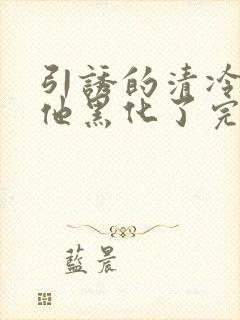 引誘的清冷
他黑化了完
藍晨